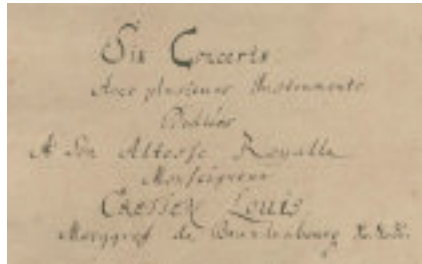 Six Concerts
Avec plusieurs Instruments
Dediées
A Son Altesse Royalle
Monseigneur
Louis
Marggraf de Brandenbourg